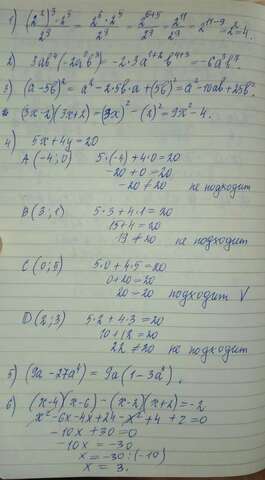 1) (2²)³·2⁵/2⁹ = 2⁶·2⁵/2⁹ = 2⁶⁺⁵/2⁹ = 2¹¹/2⁹ = 2¹¹⁻⁹ = 2² = 4.
2) 3ab⁴(-2a²b³) = -2·3a¹⁺²b⁴⁺³ = -6a³b⁷.
3) (a-5b)² = a²-2·5b·a+(5b)² = a²-10ab+25b².
(3x-2)(3x+2) = (3x)²-(2)² = 9x²-4.
4) 5x+4y=20
A(-4;0) 5·(-4)+4·0=20
-20+0=20
-20≠20 не подходит
B(3;1) 5·3+4·1=20
15+4=20
19≠20 не подходит
C(0;5) 5·0+4·5=20
0+20=20
20=20 подходит V
D(2;3) 5·2+4·3=20
10+12=20
22≠20 не подходит
5) (9a-27a⁴) = 9a(1-3a³).
6) (x-4)(x-6)-(x-2)(x+2)=-2
x²-6x-4x+24-x²+4+2=0
-10x+30=0
-10x=-30
x=-30:(-10)
x=3.